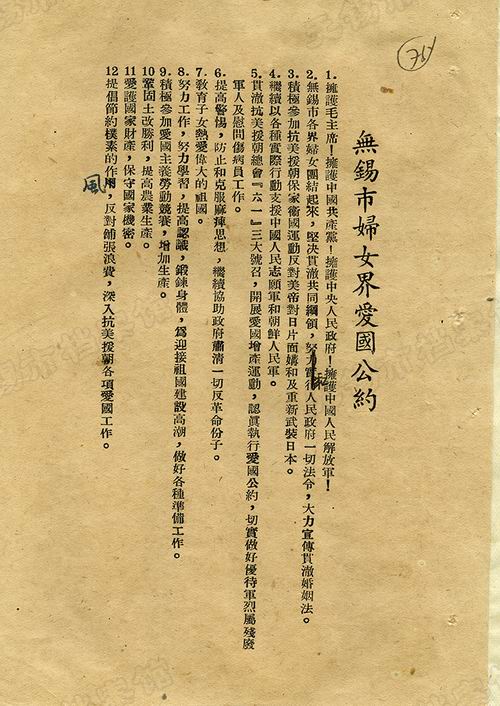 751
無錫市婦女界愛國公約
1. 擁護毛主席！擁護中國共產黨！擁護中央人民政府！擁護中國人民解放軍！
2. 無錫市各界婦女團結起來，堅决貫澈共同綱領，努力實行人民政府一切法令，大力宣傳貫澈婚姻法。
3. 積極參加抗美援朝保家衛國運動反對美帝對日片面媾和及重新武裝日本。
和
4. 繼續以各種實際行動支援中國人民志願軍和朝鮮人民軍。
5. 貫澈抗美援朝總會『六一』三大號召，開展愛國增產運動，認眞執行愛國公約，切實做好優待軍烈屬殘廢
軍人及慰問傷病員工作。
6. 提高警惕，防止和克服麻痺思想，繼續協助政府肅清一切反革命份子。
7. 敎育子女熱愛偉大的祖國。
8. 努力工作，努力學習，提高認識，鍛鍊身體，爲迎接祖國建設高潮，做好各種準備工作。
9. 積極參加愛國主義勞動競賽，增加生產。
10 鞏固土改勝利，提高農業生產。
11 愛護國家財產，保守國家機密。
12 提倡節約樸素的作用，反對鋪張浪費，深入抗美援朝各項愛國工作。
風